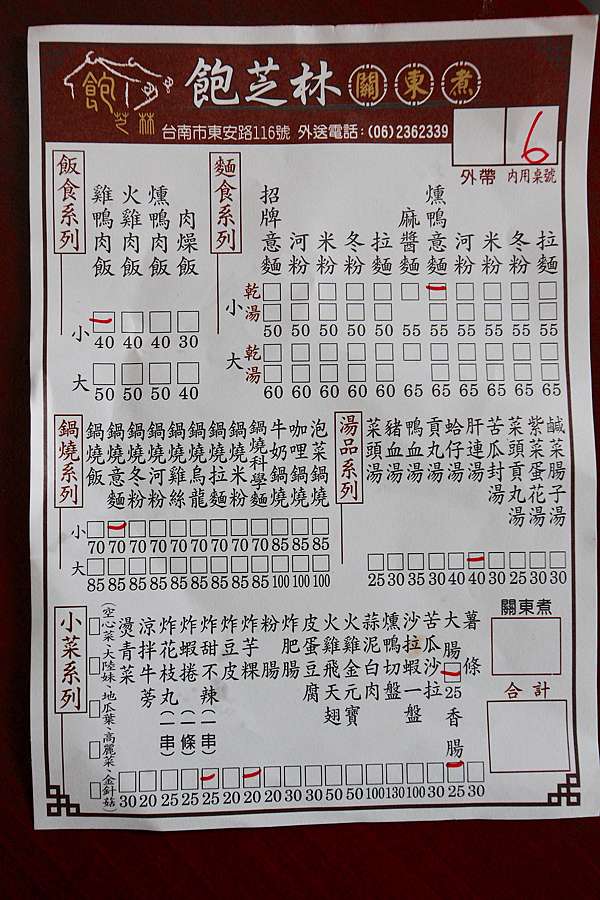 飽芝林 關東煮
飽芝林
台南市東安路116號 外送電話:(06)2362339
6
外帶 內用桌號
飯食系列
雞鴨肉飯
火雞肉飯
燻鴨肉飯
肉燥飯
小 40 40 40 30
大 50 50 50 40
麵食系列
招牌意麵
河粉
米粉
冬粉
拉麵
麻醬麵
燻鴨意麵
河粉
米粉
冬粉
拉麵
小 乾 湯
50 50 50 50 50 55 55 55 55 55 55
大 乾 湯
60 60 60 60 60 65 65 65 65 65 65
鍋燒系列
鍋燒飯
鍋燒意麵
鍋燒冬粉
鍋燒河粉
鍋燒雞絲
鍋燒烏龍
鍋燒拉麵
鍋燒米粉
鍋燒科學麵
牛奶鍋燒
咖哩鍋燒
泡菜鍋燒
小 70 70 70 70 70 70 70 70 70 85 85 85
大 85 85 85 85 85 85 85 85 85 100 100 100
湯品系列
菜頭湯
豬血湯
鴨血湯
貢丸湯
蛤仔湯
肝連湯
苦瓜封湯
菜頭貢丸湯
紫菜蛋花湯
鹹菜腸子湯
25 30 35 30 40 40 30 25 30 30
小菜系列
(空心菜·大陸妹·地瓜葉·高麗菜·金針菇)
燙青菜
涼拌牛蒡
炸花枝丸(一串)
炸蝦捲(一條)
炸甜不辣(一串)
炸豆皮
炸芋粿
粉腸
炸肥腸
皮蛋豆腐
火雞飛天翅
火雞金元寶
蒜泥白肉
燻鴨切盤
沙拉蝦一盤
苦瓜沙拉
大腸
25
香腸
薯條
30 20 25 25 25 20 20 20 30 30 50 50 100 130 100 30 25 30
關東煮
合計